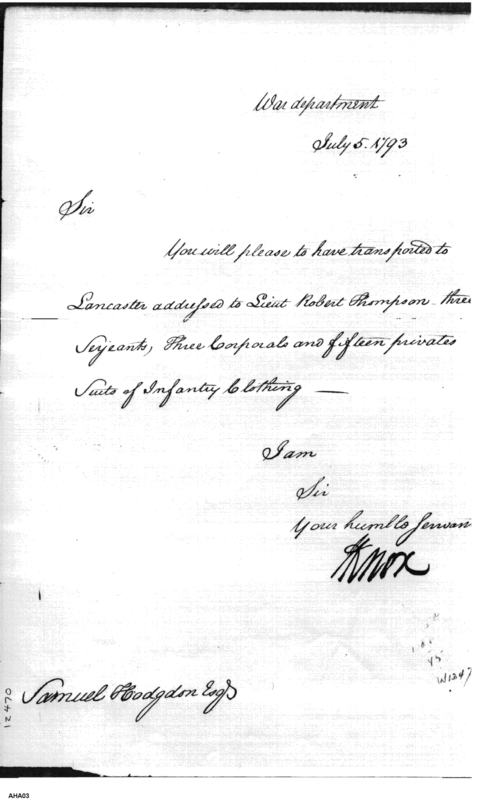 War department
July 5. 1793
Sir
You will please to have transported to
Lancaster addressed to Lieut Robert Thompson three
Serjeants, Three Corporals and fifteen privates
Suits of Infantry Clothing —
I am
Sir
Your humble Servan
HKnox
W1247
Samuel Hodgdon Esqr
12470
AHA03